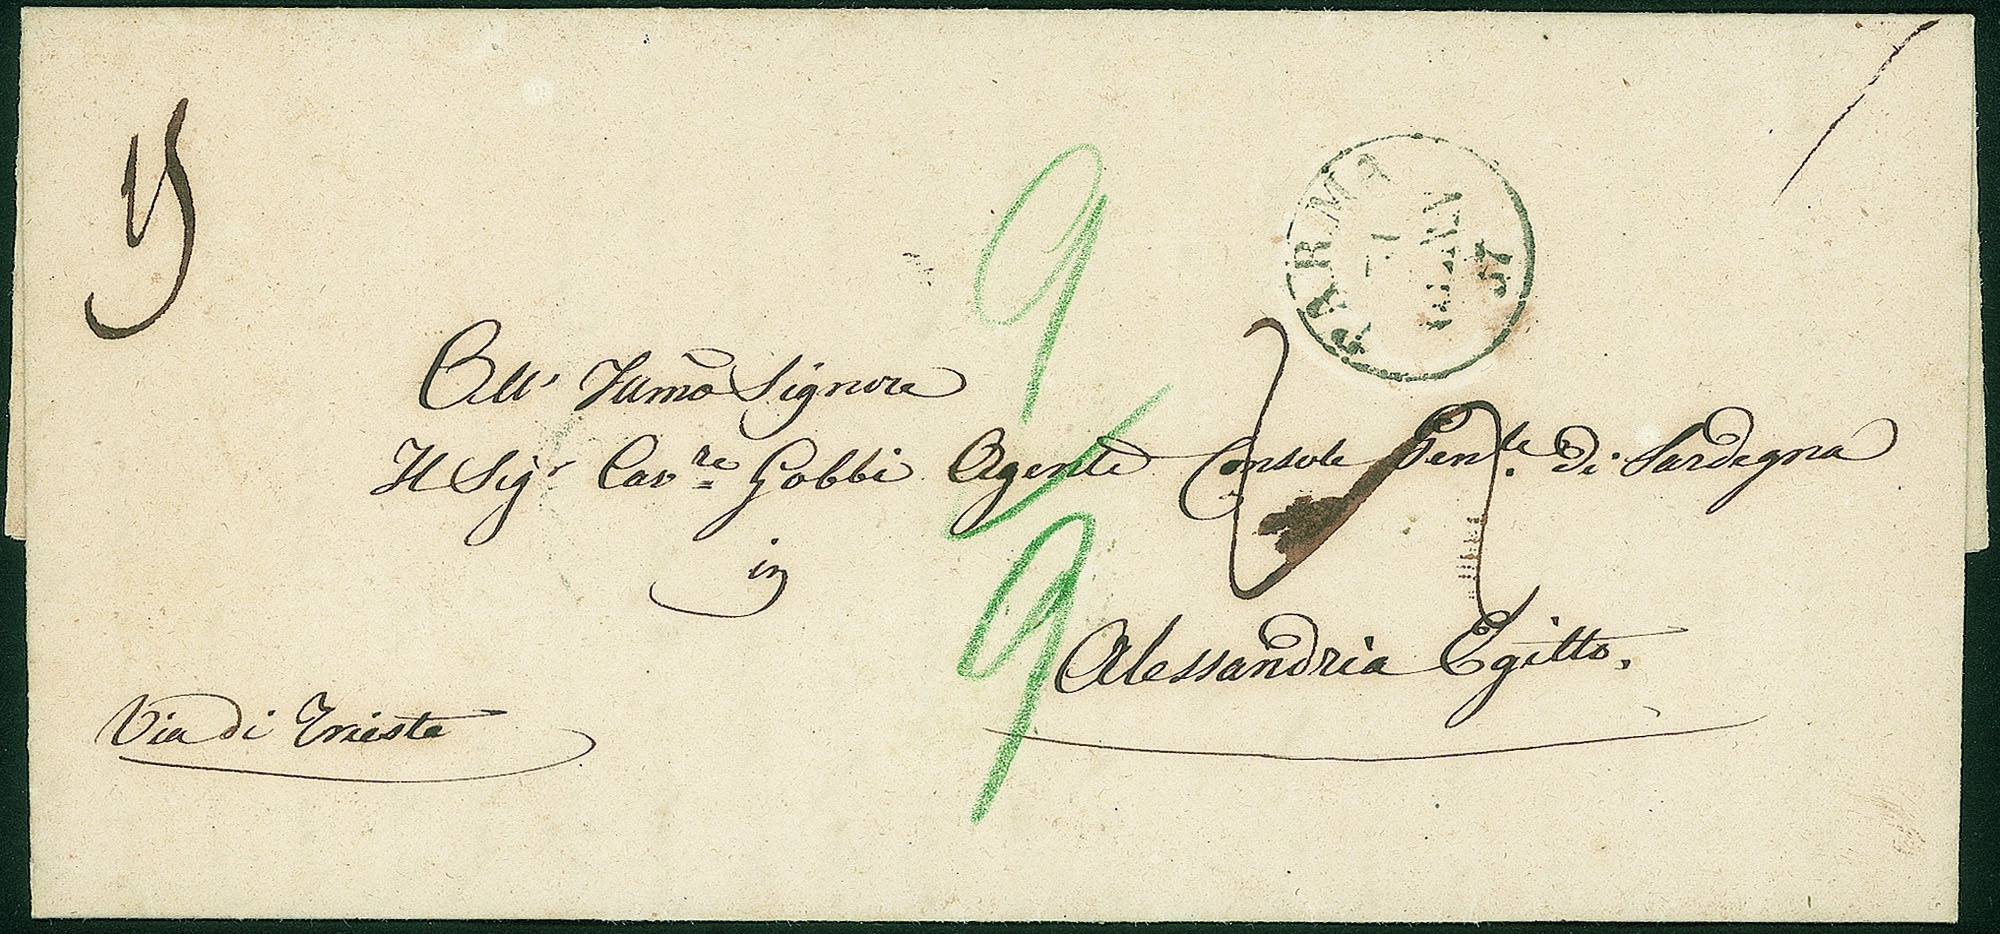 PARMA
57
9
9
All' Illmo Signore
Il Sigr Cavre Gobbi Agente Console Genle di Sardegna
in
Alessandria Egitto.
Via di Trieste